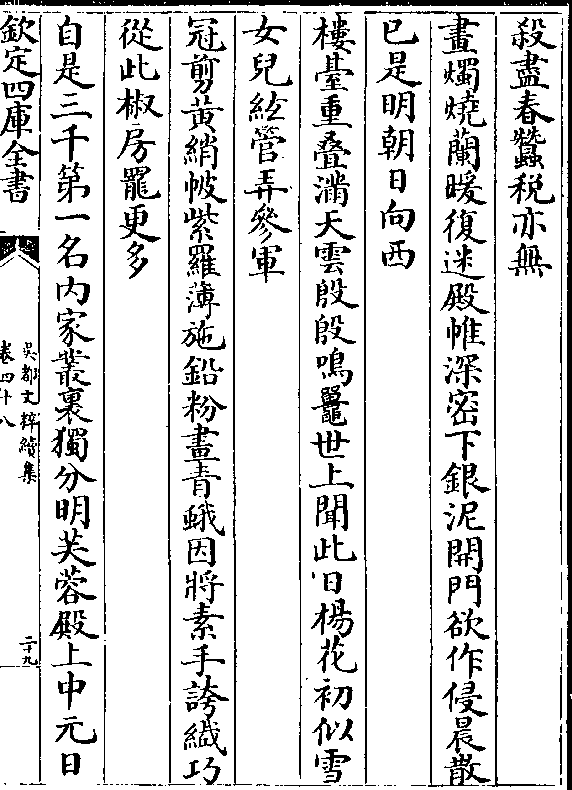 殺盡春蠶税亦無
畫燭燒蘭暖復迷殿帷深密下銀泥開門欲作侵晨散
已是明朝日向西
樓臺重叠滿天雲殷殷鳴鼉世上聞此日楊花初似雪
女兒絃管弄參軍
冠剪黃綃帔紫羅薄施鉛粉畫青蛾因將素手誇纎巧
從此椒房罷更多
自是三千第一名内家叢裏獨分明芙蓉殿上中元日
欽定四庫全書
吳都文粹續集
卷四十八
二十九